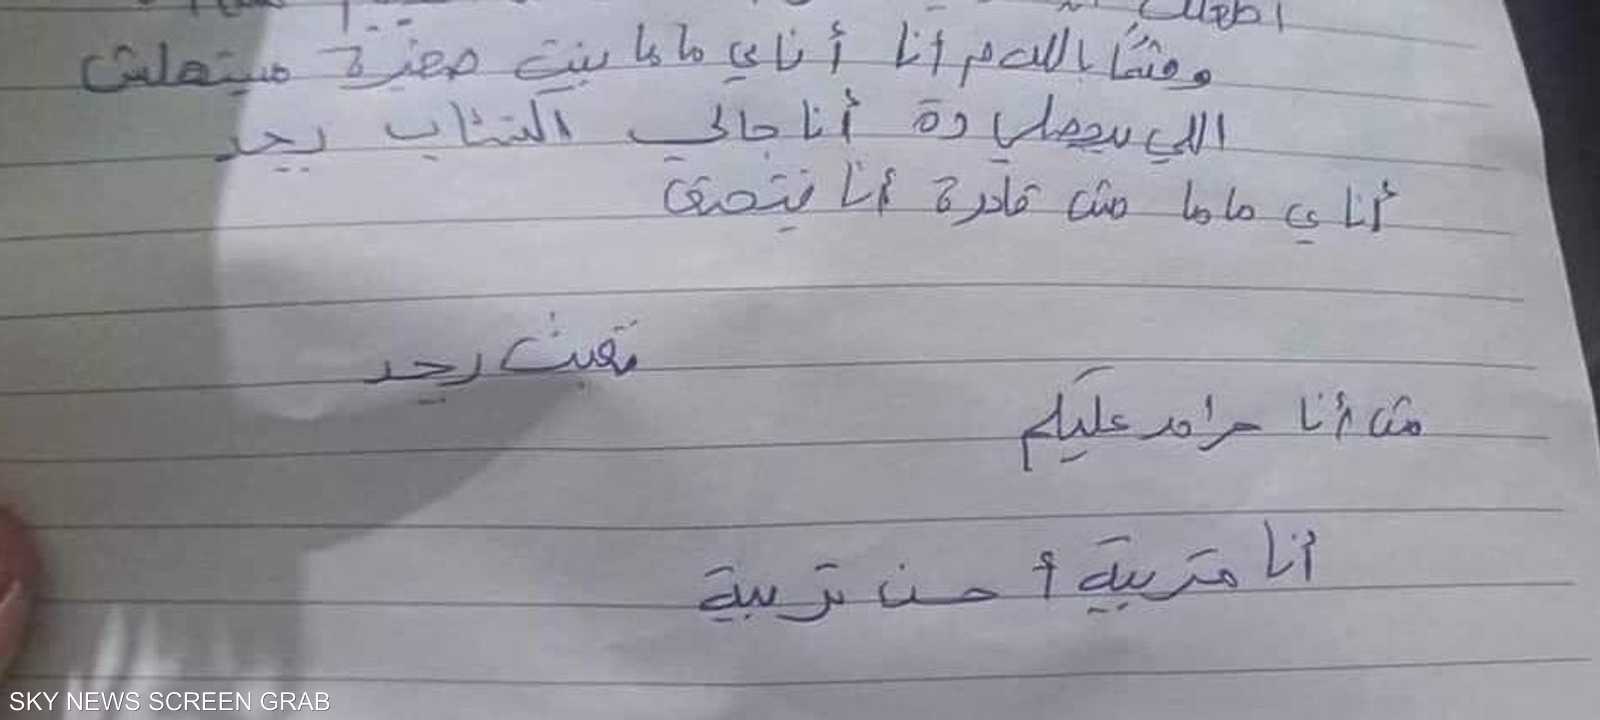 وقسمًا بالله م أنا أنا ي ماما بنت صغيرة ميستهلش
اللي بيحصلي دة أنا جالي اكتئاب بجد
أنا ي ماما مش قادرة أنا بتخنق
تعبت بجد
مش أنا حرام عليكم
أنا متربية أحسن تربية
SKY NEWS SCREEN GRAB